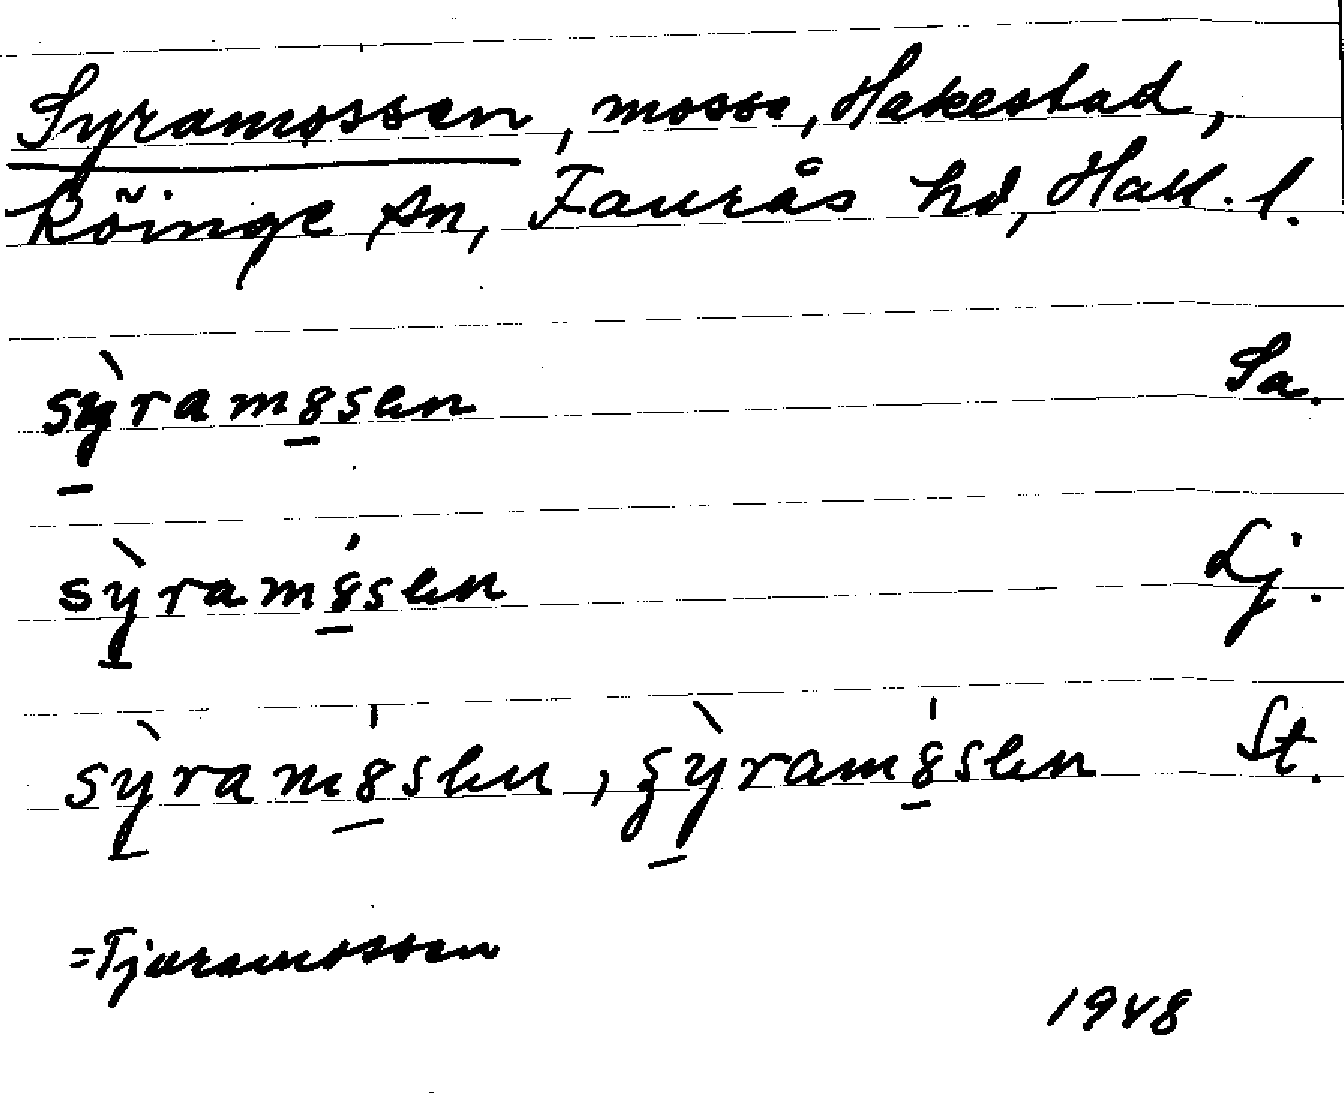 Syramossen, mosse, Hakestad,
Köinge sn, Faurås hd, Hall. l.
sỳ̲ram8̲sen Sa.
sỳ̲ram8̲́sen Lj.
sỳ̲ram8̲́sen, ʒỳ̲ram8̲́sen St.
=Tjuramossen
1948